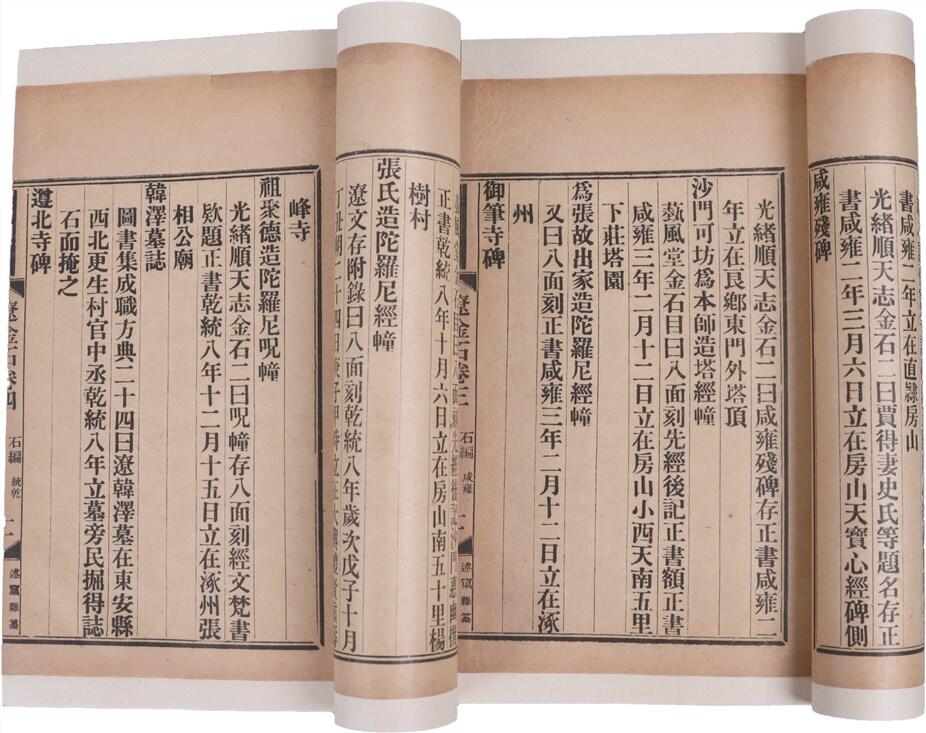 書咸雍二年立在直隷房山
光緒順天志金石二曰賈得妻史氏等題名存正
書咸雍二年三月六日立在房山天寶心經碑側
咸雍殘碑
光緒順天志金石二曰咸雍殘碑存正書咸雍二
年立在良鄉東門外塔頂
沙門可坊爲本師造塔經幢
藝風堂金石目曰八面刻先經後記正書額正書
咸雍三年二月十二日立在房山小西天南五里
下莊塔園
爲張故出家造陀羅尼經幢
又曰八面刻正書咸雍三年二月十二日立在涿
州
御筆寺碑
遼金石卷三
石編
咸雍
二
遼居雜著
正書乾統八年十月六日立在房山南五十里楊
樹村
張氏造陀羅尼經幢
遼文存附錄曰八面刻乾統八年歲次戊子十月
峰寺
祖聚德造陀羅尼呪幢
光緒順天志金石二曰呪幢存八面刻經文梵書
欵題正書乾統八年十二月十五日立在涿州張
相公廟
韓澤墓誌
圖書集成職方典二十四曰遼韓澤墓在東安縣
西北更生村官中丞乾統八年立墓旁民掘得誌
石面掩之
遵北寺碑
遼金石卷四
石編
統乾